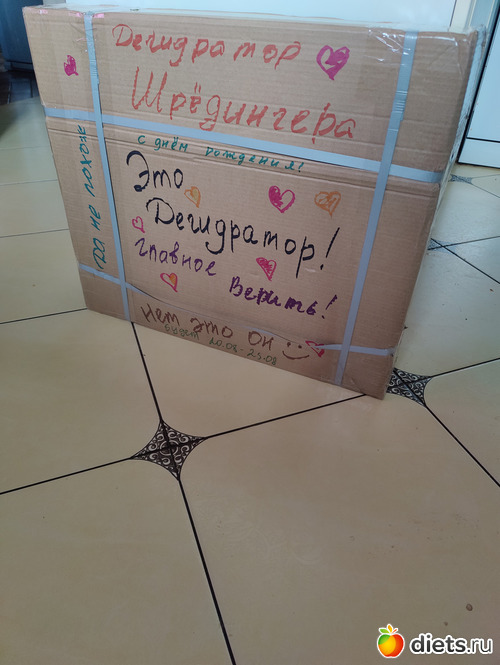 Дегидратор
Шрёдингера
с днём рождения!
Это
Дегидратор!
Главное
Верить!
Нет это он
будет 20.08-25.08
да не похож
diets.ru